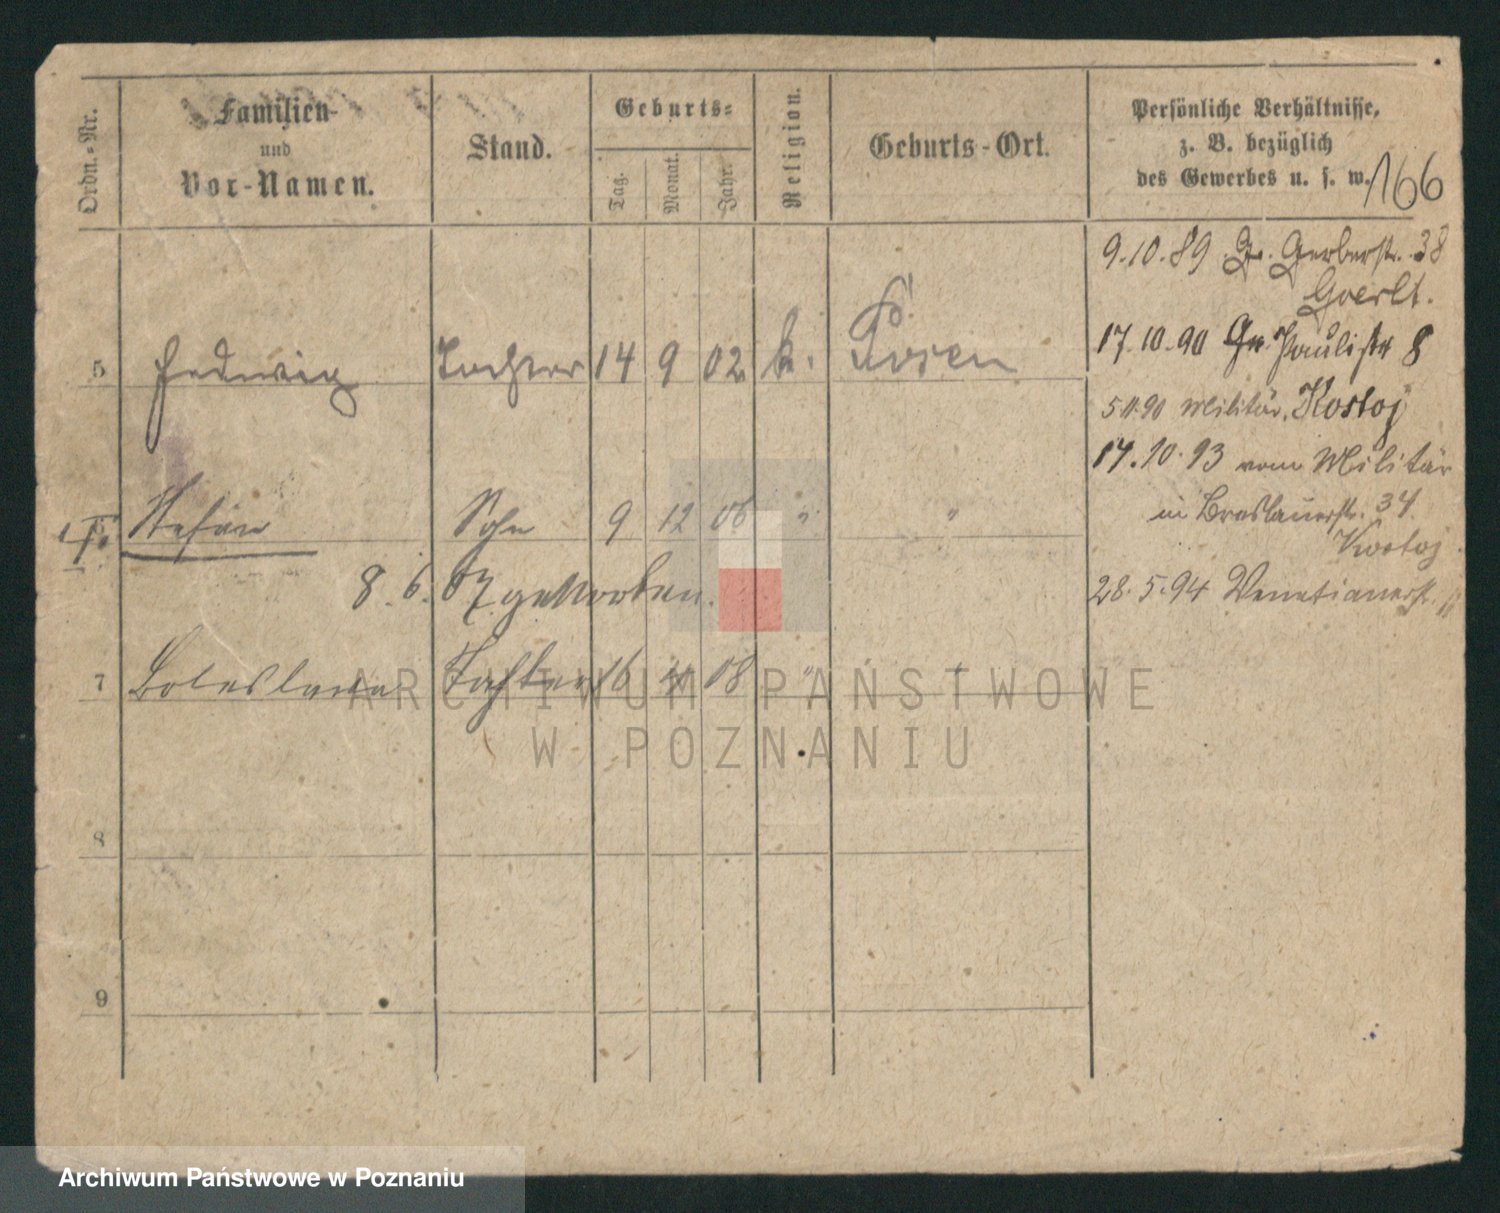 Ordn.-Nr.
Familien-
und
Vor-Namen.
Stand.
Geburts-
Tag.
Monat.
Jahr.
Religion.
Geburts-Ort.
Persönliche Verhältnisse,
z. B. bezüglich
des Gewerbes u. s. w.
166
9.10.89 Gr. Gerberstr. 38
Goerlt.
17.10.90 Gr. Paulistr 8
5.11.90 Militär, Kostoj
17.10.93 vom Militär
in Breslauerstr. 34
Kostoj
28.5.94 Venetianerstr.
5 Hedwig Tochter 14 9 02 k. Posen
6 Stefan Sohn 9 12 06 " "
8.6.07 gestorben.
7 Boleslawa Tochter 16 08 "
8
9
ARCHIWUM PAŃSTWOWE
W POZNANIU
Archiwum Państwowe w Poznaniu